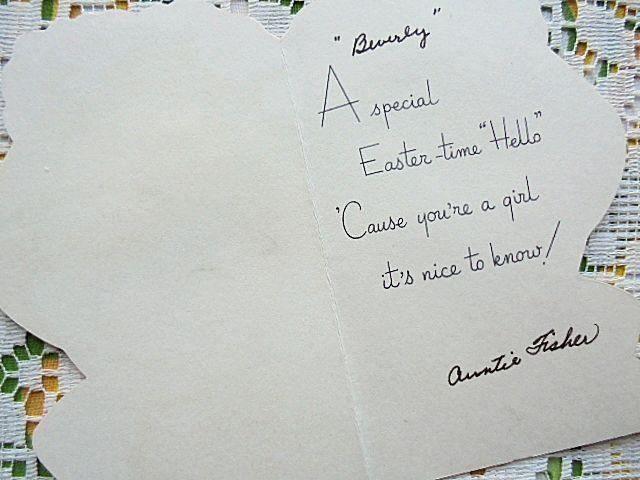 "Beverly"
A special
Easter-time "Hello"
'Cause you're a girl
it's nice to know!
Auntie Fisher